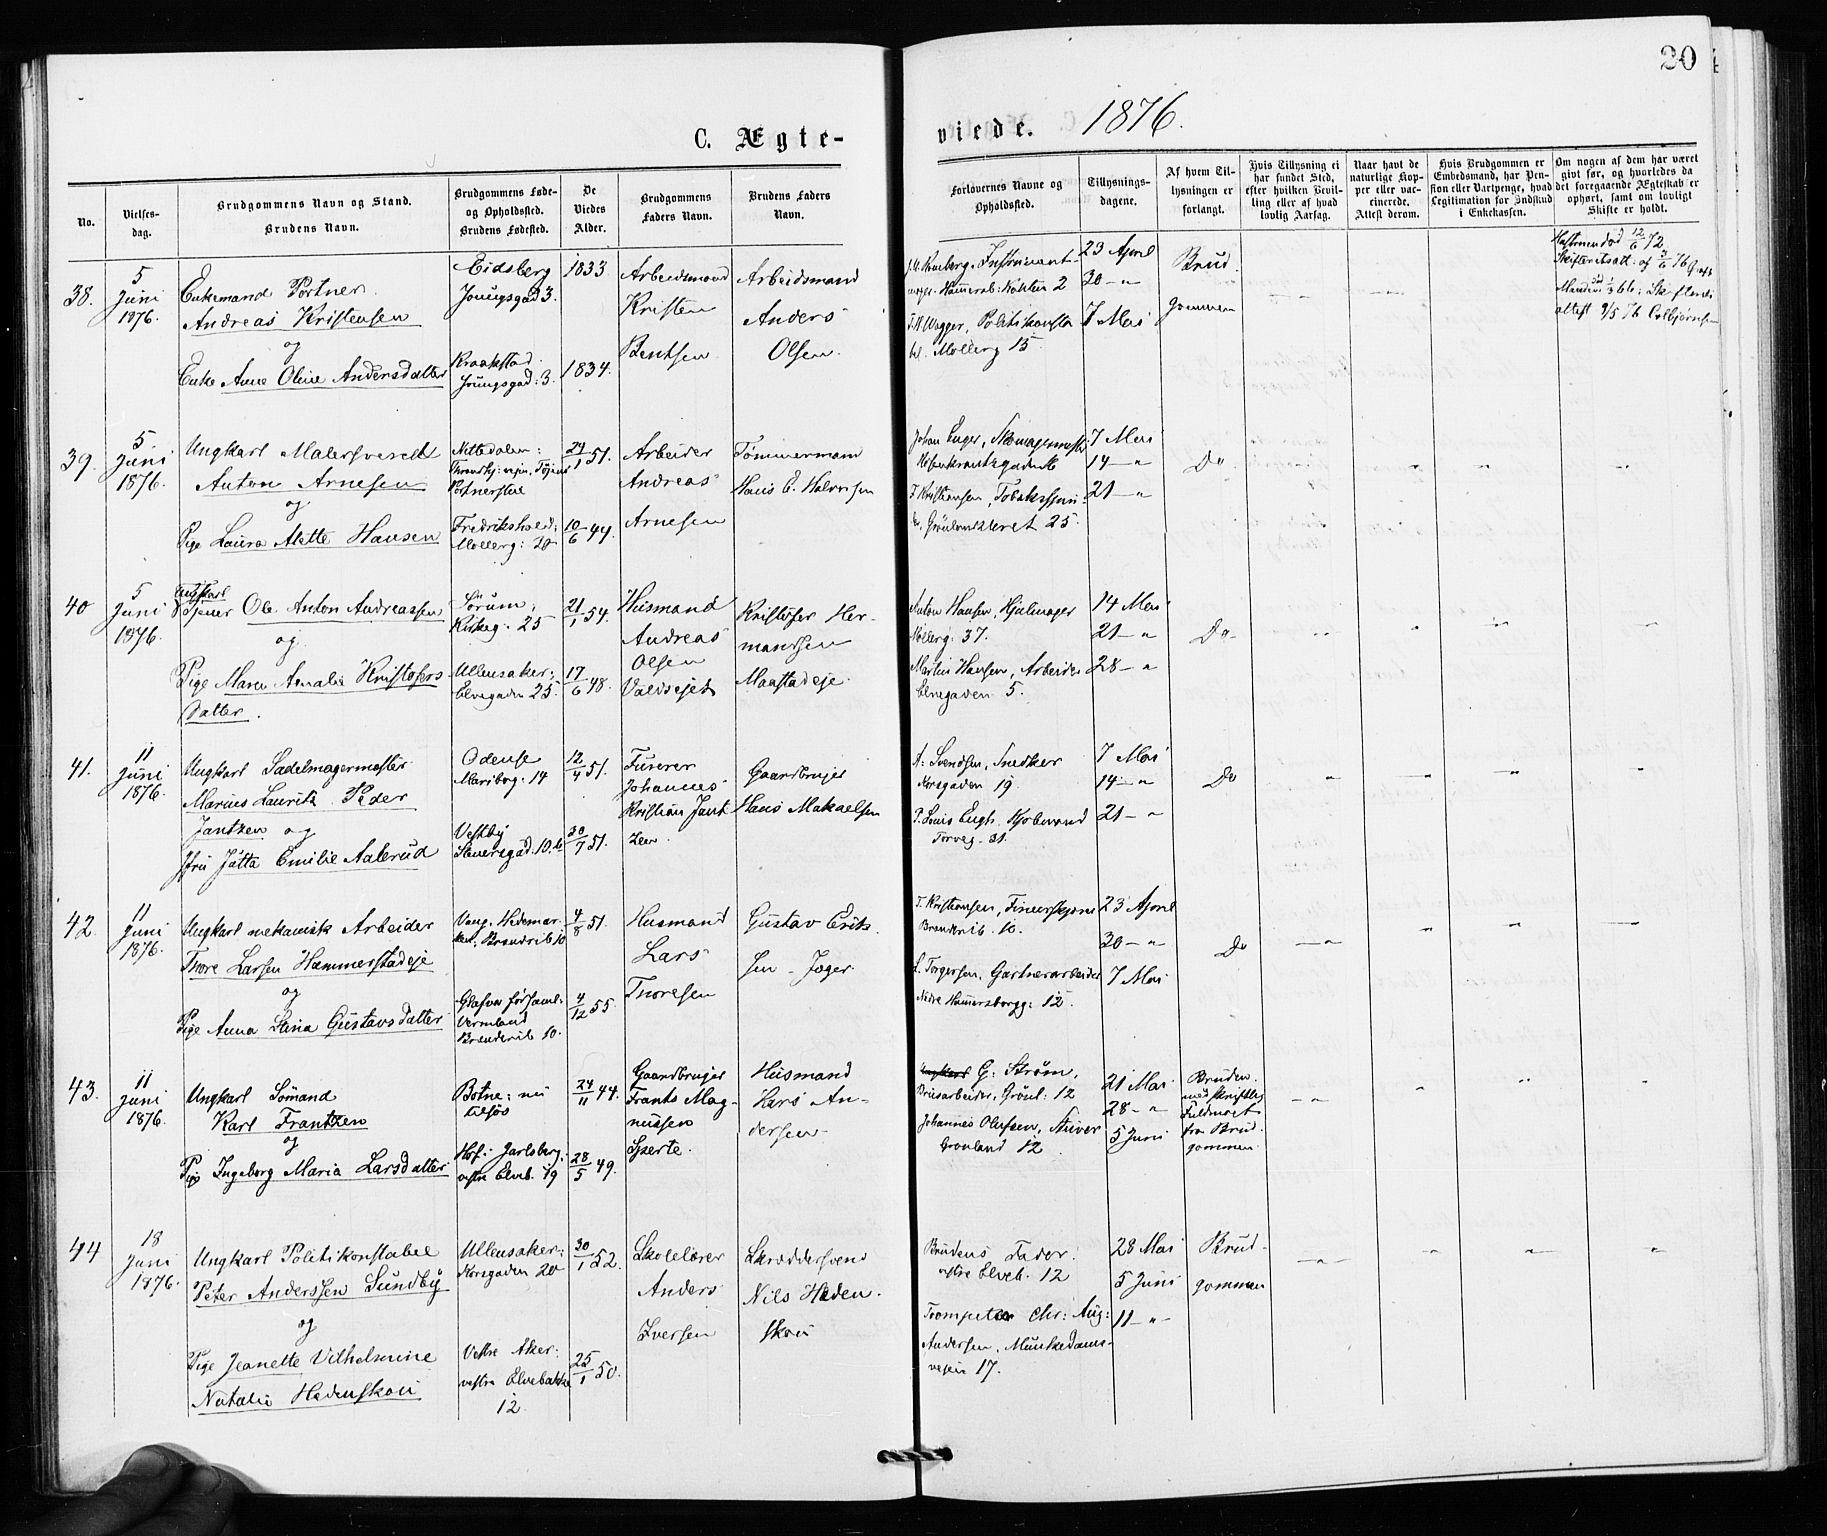 20
C. Ægte-
viede. 1876.
No.
Vielses-
dag.
Brudgommens Navn og Stand.
Brudens Navn.
Brudgommens Føde-
og Opholdssted.
Brudens Fødested.
De
Viedes
Alder.
Brudgommens
Faders Navn.
Brudens Faders
Navn.
Forlovernes Navne og
Opholdssted.
Tillysnings-
dagene.
Af hvem Til-
lysningen er
forlangt.
Hvis Tillysning ei
har fundet Sted,
efter hvilken Bevil-
ling eller af hvad
lovlig Aarsag.
Naar havt de
naturlige Kop-
per eller vac-
cinerede.
Attest derom.
Hvis Brudgommen er
Embedsmand, har Pen-
sion eller Vartpenge, hvad
Legitimation for Indskud
i Enkekassen.
Om nogen af dem har været
gift før, og hvorledes da
det foregaaende Ægteskab er
ophørt, samt om lovligt
Skifte er holdt.
38.
5
Juni
1876.
Enkemand Portner
Andreas Kristensen
og
Enke Anne Oline Andersdatter
Eidsberg
Youngsgad 3.
Kraakstad
Youngsgad: 3.
1833
1834.
Arbeidsmand
Kristen
Bentsen
Arbeidsmand
Anders
Olsen.
23 April
30 - "
7 Mai
Brud
gommen
39.
5
Juni
1876.
Ungkarl Malersvend
Anton Arnesen
og
Pige Laura Alette Hansen
Nittedalen:
Portnerstue
Fredrikshald:
Mollerg: 20
24/1 51.
10/6 44.
Arbeider
Andreas
Arnesen
Tømmermand
Hans E. Halvorsen
Johan Enger, Skomagermester
T. Kristiansen, Tobaksspin-
der, Grønlandsleret 25.
7 Mai
14 - "
21 - "
Do
40
5
Juni
1876.
Ungkarl
Tjener Ole Anton Andreassen
og
Pige Maren Amalie Kristofers
datter.
Sørum,
Kirkeg: 25
Ullensaker:
Elvegaden 25.
21/1 54.
17/6 48.
Husmand
Andreas
Olsen
Kristofer Her-
mansen
Maastadeje.
Anton Hansen, Hjulmager
Mollerg: 37.
Martin Hansen, Arbeider
Elvegaden 5.
14 Mai
21 - "
28 - "
Do
41.
11
Juni
1876.
Ungkarl Sadelmagermester
Marius Lauritz Peder
Jantzen og
Jfru Jutta Emilie Aalerud
Odense
Maribog: 14
Vestby
12/4 51.
30/7 51.
Furerer
Johannes
Kristian Jant
zen.
Gaardbruger
Hans Makaelsen
A: Svendsen, Snedker
Korsgaden 19.
P. Louis Engh, Kjøbmand
Torveg. 31.
7 Mai
14 - "
21 - "
Do
42.
11
Juni
1876.
Ungkarl mekanisk Arbeider
Thore Larsen Hammerstadeje
og
Pige Anna Stina Gustavsdatter
Vang, Hedemar-
ken, Brænderib 10
Glafva forsaml:
Vermland
Brænderib 10.
4/8 51.
4/12 55.
Husmand
Lars
Thoresen
Gustav Eriks
sen - Jæger
L. Torgersen, Gartnerarbeider
Nedre Hammersborgg: 12.
23 April
30 - "
7 Mai
Do
43.
11
Juni
1876.
Ungkarl Sømand
Karl Frantzen
og
Pige Ingeborg Maria Larsdatter
Botne: nu
tilsøs
Hof: Jarlsberg:
vestre Elveb. 19
24/11 44.
28/5 49.
Gaardbruger
Frants Mag-
nussen
Husmand
Lars An-
dersen
G: Strøm,
Brusarbeider, Grønl: 12
Johannes Olufsen, Stuver
Grønland 12
21 Mai
28 - "
5 Juni
Bruden
med skriftlig
Fuldmagt
fra Brud-
gommen
44
18
Juni
1876.
Ungkarl Politikonstabel
Peter Anderssen Sundby
og
Pige Jeanette Vilhelmine
Natalie Hedenskou
Ullensaker:
Korsgaden 20
Vestre Aker:
vestre Elvebakke
12
30/1 52.
25/1 50.
Skolelærer
Anders
Iversen
Skræddersvend
Nils Heden-
skou
Brudens Fader.
vestre Elveb. 12
Trompeter Chr: Aug:
Andersen, Munkedams-
veien 17.
28 Mai
5 Juni
11 - "
Brud-
gommen